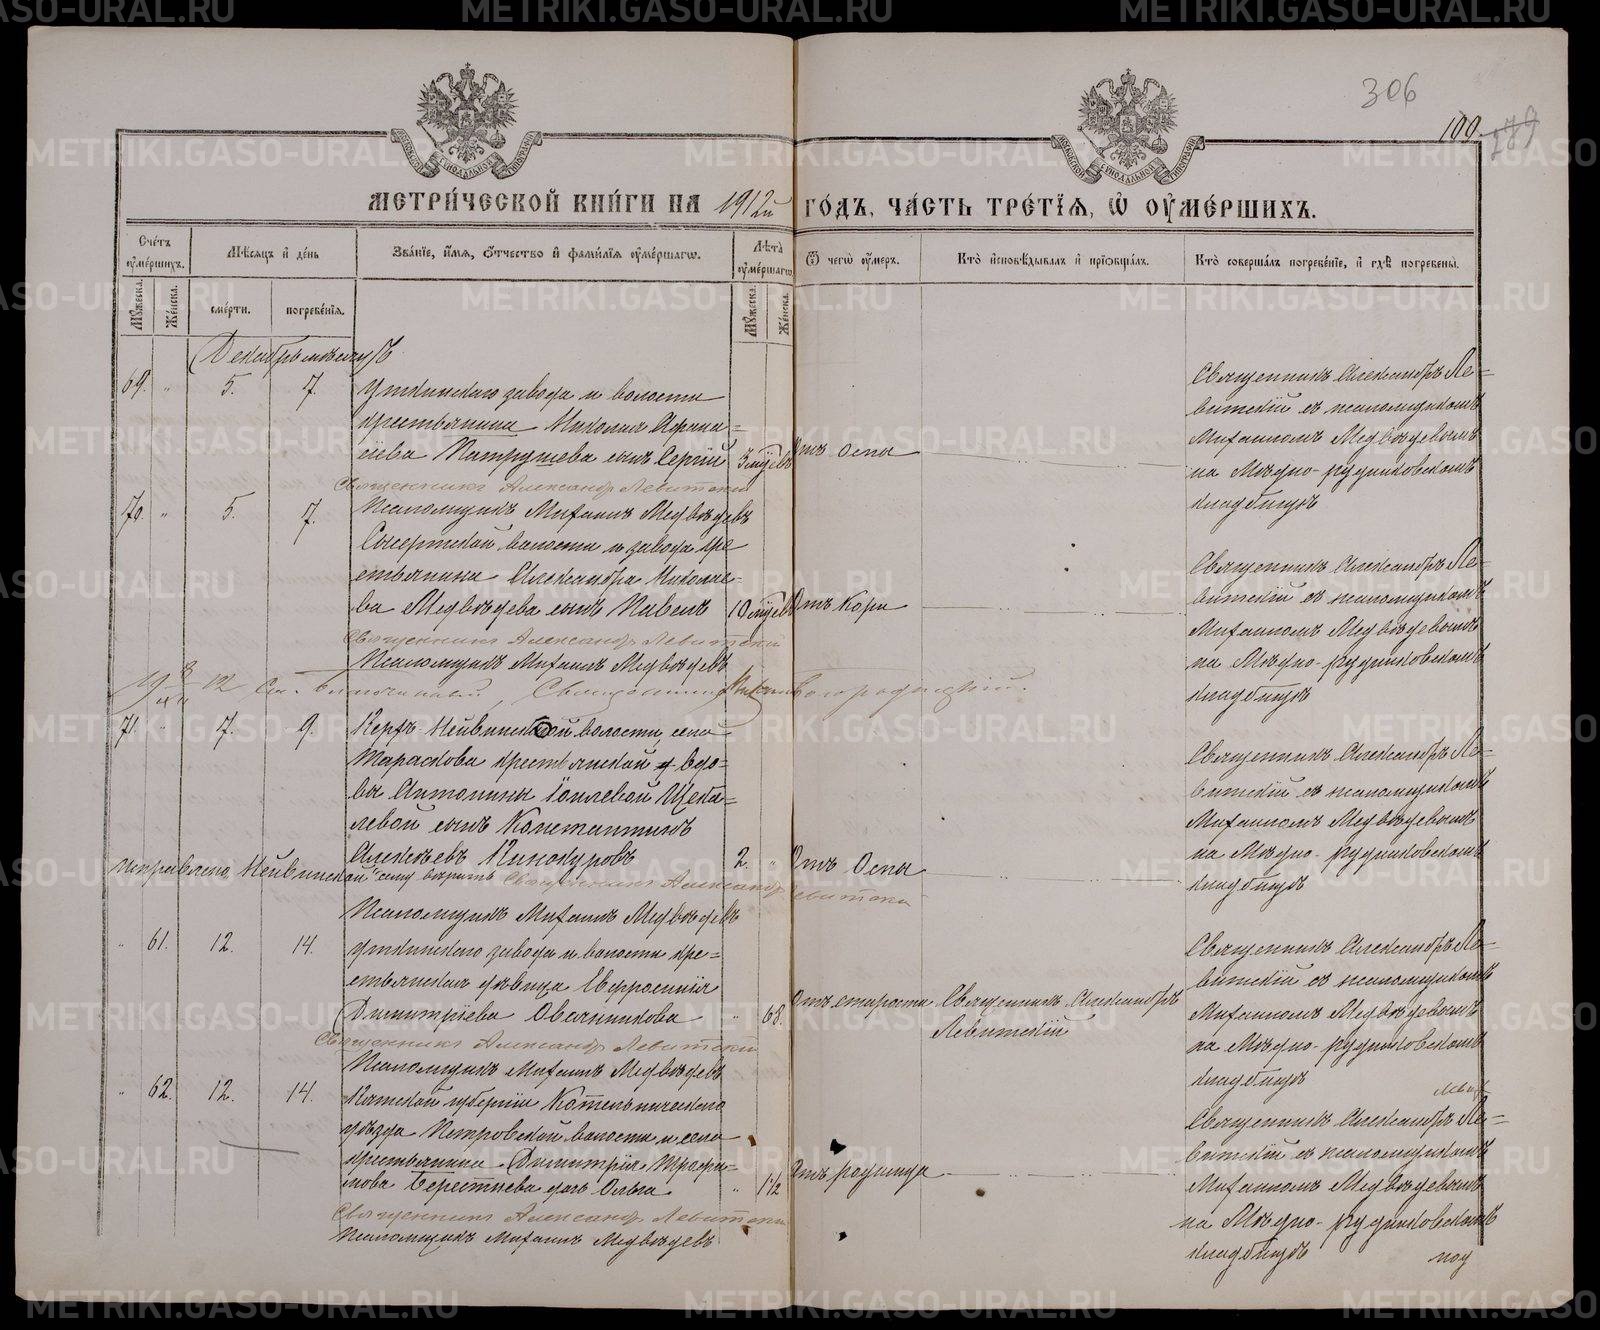 306
100.
279
МЕТРИ́ЧЕСКОЙ КНИ́ГИ НА 1912й ГО́ДЪ, ЧА́СТЬ ТРЕ́ТЇѦ, Ѡ ОУМЕ́РШИХЪ.
Сче́тъ оумершихъ.
Мѣсяцъ и де́нь
Зва́нїе, и́мя, о́тчество и фами́лїя оуме́ршагѡ.
Лѣта̀ оуме́ршагѡ.
Ѿ чегѡ̀ оу́меръ.
Кто̀ исповѣ́дывалъ и прїобща́лъ.
Кто̀ соверша́лъ погребе́нїе, и гдѣ̀ погребены̀.
Му́жеска. Же́нска.
сме́рти. погребе́нїя.
Му́жеска. Же́нска.
Декабрь мѣсяцъ
69. " 5. 7.
Уткинскаго завода и волости
крестьянина Николая Афана=
сіева Патрушева сынъ Сергій
3 мѣс.
Отъ оспы
Священникъ Александръ Ле=
витскій съ псаломщикомъ
Михаиломъ Медвѣдевымъ
на Мѣдно-рудниковскомъ
кладбищѣ
Священникъ Александръ Левитскій
Псаломщикъ Михаилъ Медвѣдевъ
70. " 5. 7.
Сысертской волости и завода кре
стьянина Александра Николае=
ва Медвѣдева сынъ Павелъ
10 мѣс.
Отъ Кори
Священникъ Александръ Ле=
витскій съ псаломщикомъ
Михаиломъ Медвѣдевымъ
на Мѣдно-рудниковскомъ
кладбищѣ
Священникъ Александръ Левитскій
Псаломщикъ Михаилъ Медвѣдевъ
Священникъ
71. " 7. 9.
Верхъ-Нейвинской волости, села
Тараскова крестьянской вдо=
вы Антонины Іоилевой Щека=
левой сынъ Константинъ
Алексѣевъ Винокуровъ
2. "
Отъ Оспы
Священникъ Александръ Ле=
витскій съ псаломщикомъ
Михаиломъ Медвѣдевымъ
на Мѣдно-рудниковскомъ
кладбищѣ
Исправлено „Нейвинской" сему вѣрить Священникъ Александръ Левитскій
Псаломщикъ Михаилъ Медвѣдевъ
" 61. 12. 14.
Уткинскаго завода и волости кре=
стьянская дѣвица Евфросинія
Димитріева Овсянникова
" 68.
Отъ старости
Священникъ Александръ
Левитскій
Священникъ Александръ Ле=
витскій съ псаломщикомъ
Михаиломъ Медвѣдевымъ
на Мѣдно-рудниковскомъ
кладбищѣ
Священникъ Александръ Левитскій
Псаломщикъ Михаилъ Медвѣдевъ
" 62. 12. 14.
Вятской губерніи Котельническаго
уѣзда Петровской волости и села
крестьянина Димитрія Трофи=
мова Берестнева дочь Ольга
" 1½
Отъ родимца
Священникъ Александръ Ле=
витскій съ псаломщикомъ
Михаиломъ Медвѣдевымъ
на Мѣдно-рудниковскомъ
кладбищѣ
Священникъ Александръ Левитскій
Псаломщикъ Михаилъ Медвѣдевъ
METRIKI.GASO-URAL.RU